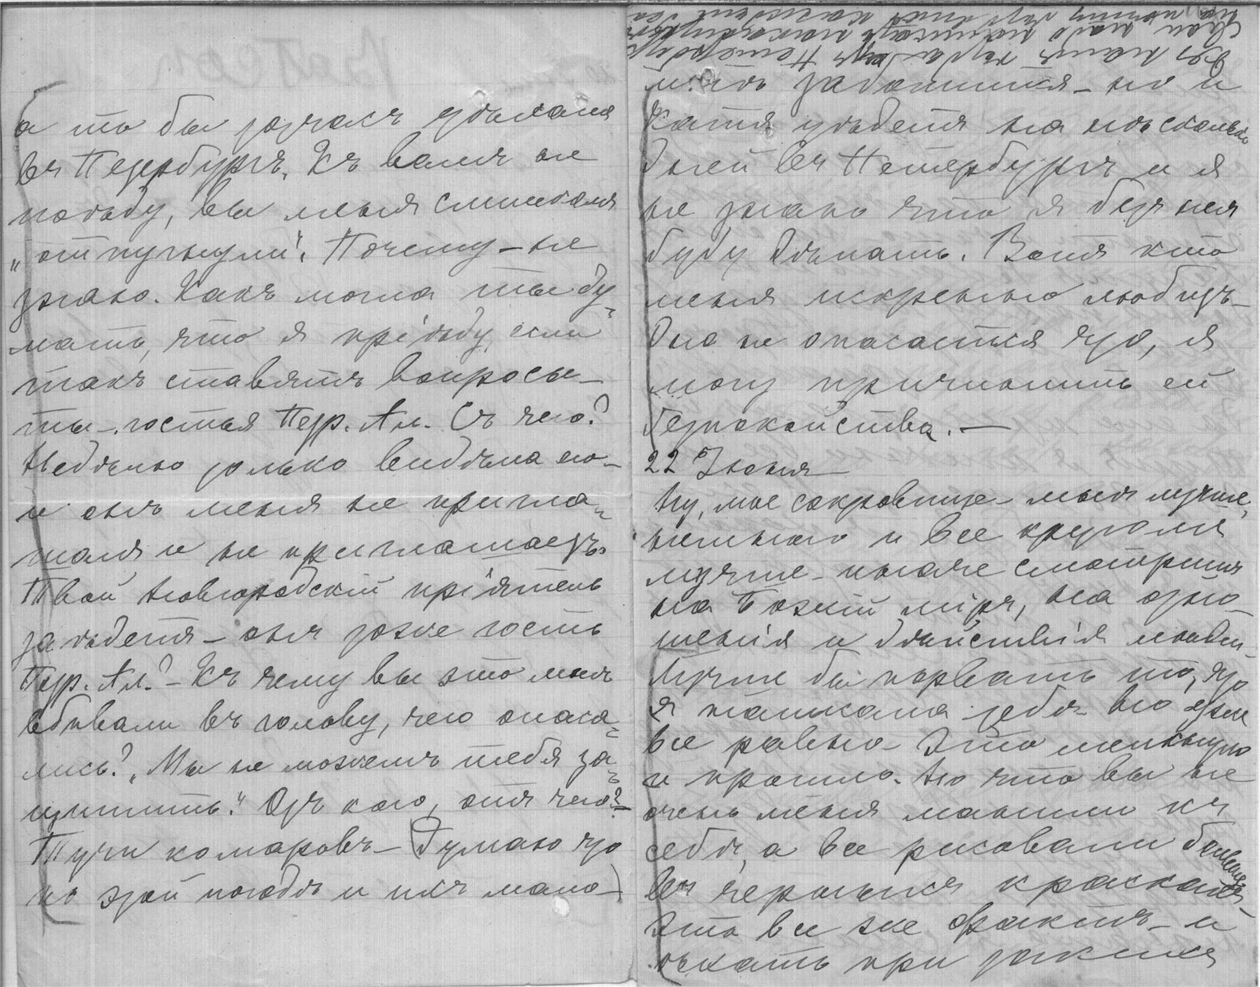 а то бы тотчасъ уѣхала
въ Петербургъ. Къ вамъ не
поѣду, вы меня слишкомъ
„отпугнули“. Почему – не
знаю. Какъ могла ты ду-
мать, что я пріѣду, если
такъ ставятъ вопросы –
ты – гостья Петр. Ал. Съ чего?
Недѣлю только видѣла его –
и онъ меня не пригла-
шалъ и не приглашаетъ.
Твой новгородскій пріятель
заѣдетъ – онъ тоже гость
Петр. Ал.? – Къ чему вы это мнѣ
вбивали въ голову, чего опаса-
лись? „Мы не можемъ тебя за-
щитить.“ Отъ кого, отъ чего? –
Тучи комаровъ – Думаю что
по этой погодѣ и ихъ мало –
заботится – но и
Катя уѣдетъ на нѣсколько
дней въ Петербургъ и я
не знаю что я безъ нея
буду дѣлать. Вотъ кто
меня искренно любитъ –
Она не опасается что, я
могу причинить ей
безпокойства. –
22 Іюня –
Ну, мое сокровище – мнѣ лучше,
и все кругомъ
лучше – иначе смотришь
на Божій міръ, на отно-
шенія и дѣйствія людей –
Лучше бы порвать то, что
я написала тебѣ – но уже
все равно – Это мелькнуло
и прошло. Но что вы не
очень меня манили къ
себѣ, а все рисовали больше
въ черныхъ краскахъ –
это все же фактъ – и
ѣхать при такихъ